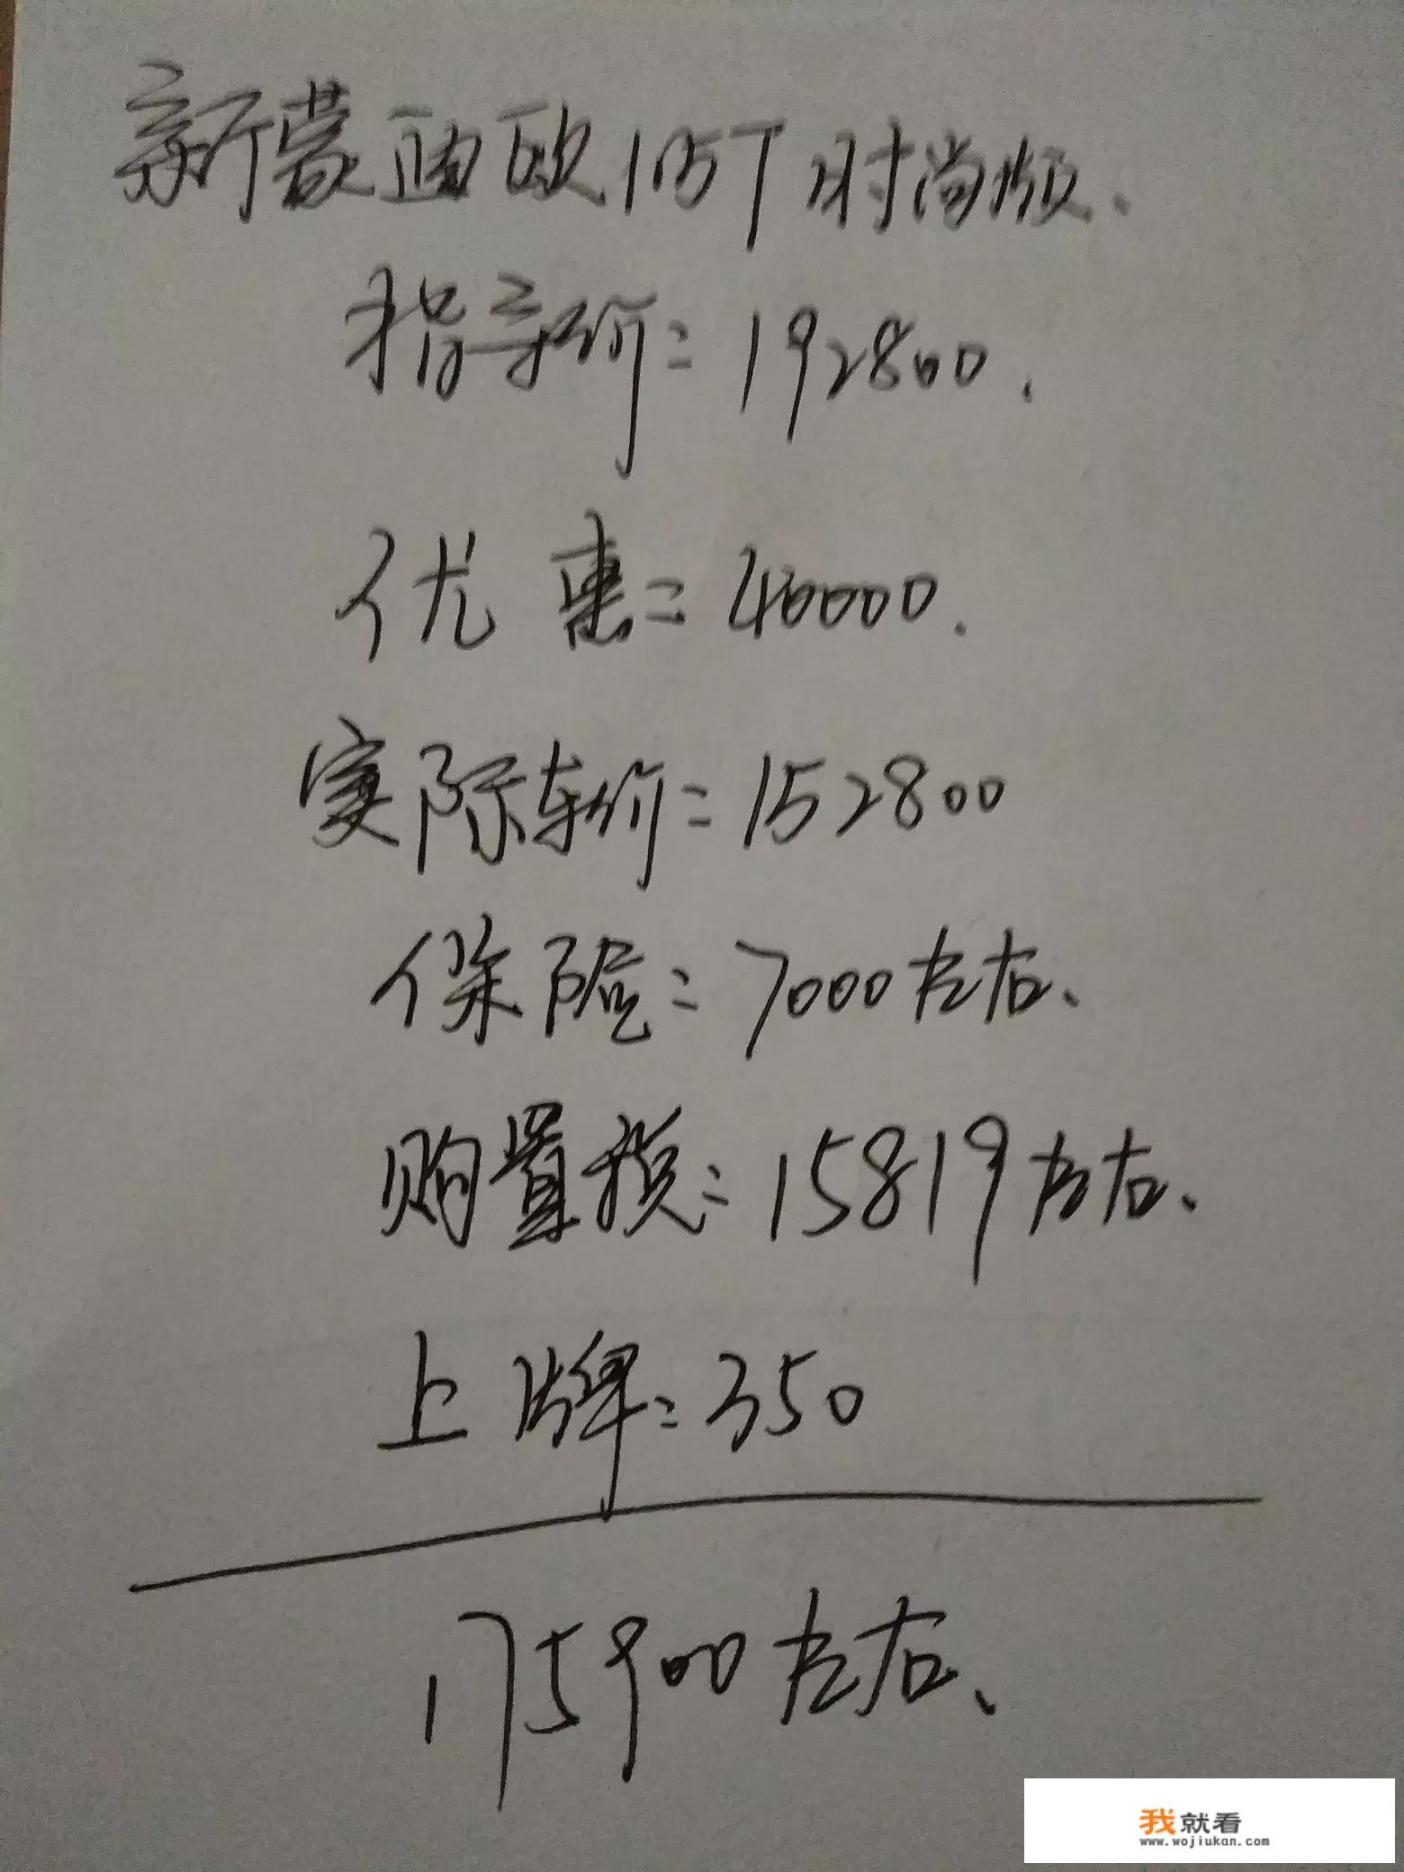 新蒙迪欧1.5T时尚版.
指导价=192800.
优惠=40000.
实际车价=152800
保险=7000左右、
购置税=15819左右、
上牌=350
175900左右、
我就看
www.wojiukan.com